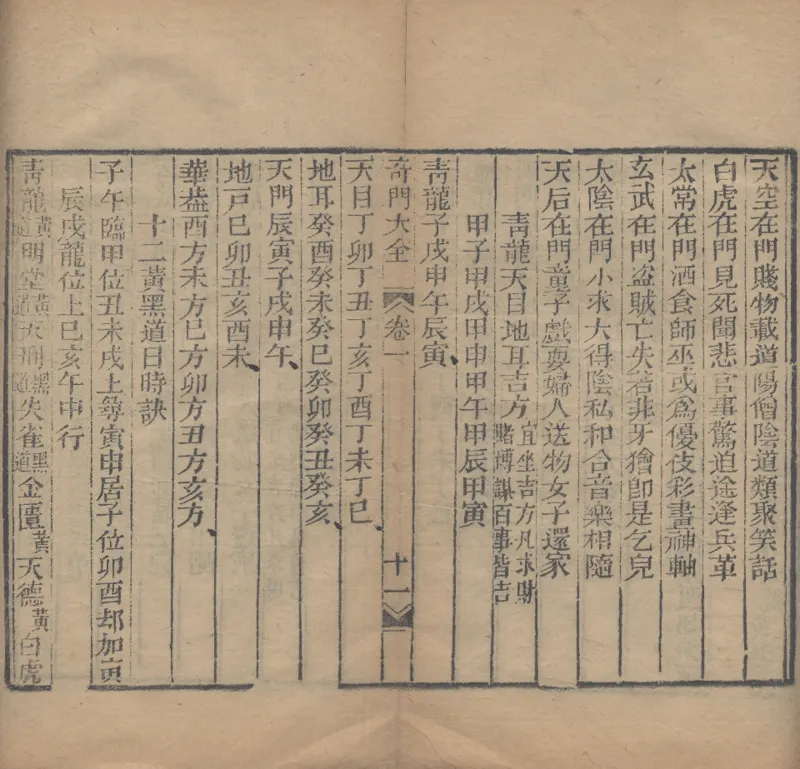 天空在門賤物載道陽僧陰道類聚笑話
白虎在門見死聞悲官事驚迫途逢兵革
太常在門酒食師巫或為優伎彩畫神軸
玄武在門盜賊亡失若非牙獪即是乞兒
太陰在門小求大得陰私和合音樂相隨
天后在門童子戲耍婦人送物女子還家
青龍天目地耳吉方宜坐吉方凡求財賭博謀百事皆吉
甲子甲戌甲申甲午甲辰甲寅
青龍子戌申午辰寅
奇門大全 卷一 十一
天目丁卯丁丑丁亥丁酉丁未丁巳
地耳癸酉癸未癸巳癸卯癸丑癸亥
天門辰寅子戌申午
地戸巳卯丑亥酉未
華葢酉方未方巳方卯方丑方亥方
十二黃黑道日時訣
子午臨甲位丑未戌上尋寅申居子位卯酉却加寅
辰戌龍位上巳亥午中行
青龍黃道明堂黃道天刑黑道朱雀黑道金匱黃天德黃白虎